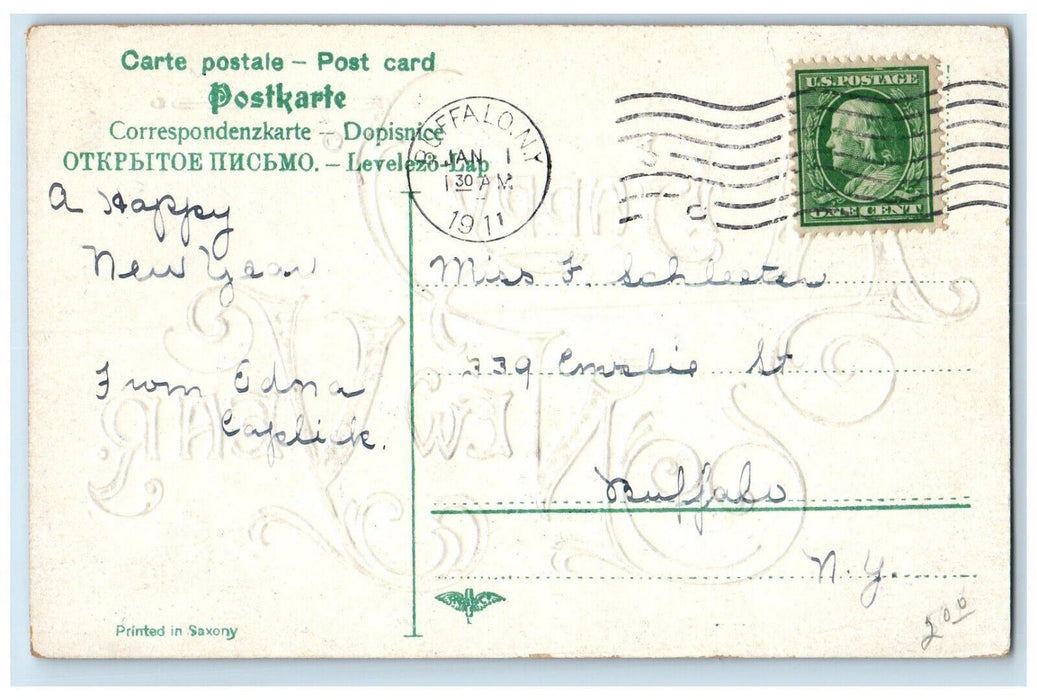 Carte postale – Post card
Postkarte
Correspondenzkarte – Dopisnice
ОТКРЫТОЕ ПИСЬМО. – Levelező-Lap
BUFFALO, N.Y.
JAN 1
1 30 AM
1911
U.S. POSTAGE
ONE CENT
A Happy
New Year
From Edna
Caplick.
Miss F. Schlester
339 Emslie St
Buffalo
N. Y.
Printed in Saxony
2 00